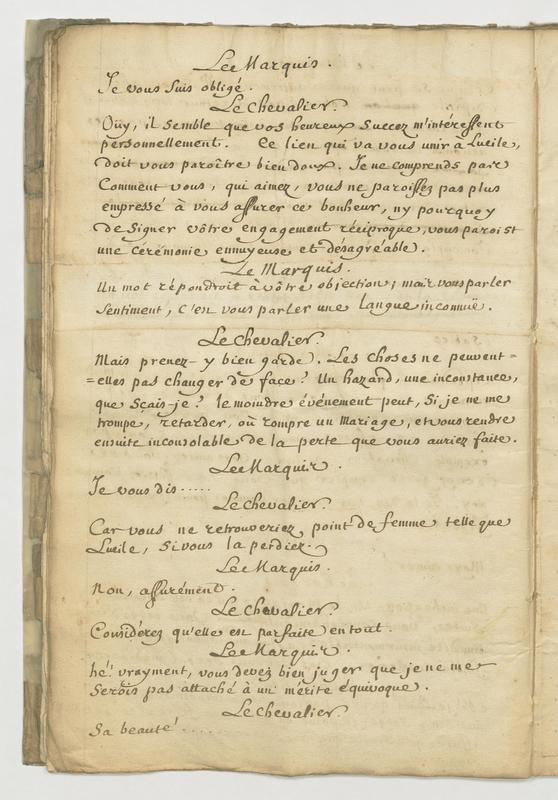 Le Marquis.
Je vous suis obligé.
Le Chevalier.
Oüy, il semble que vos heureux succez m'intéressent
personnellement. Ce lien qui va vous unir à Lucile,
doit vous paroître bien doux. Je ne comprends pas
Comment vous, qui aimez, vous ne paroissez pas plus
empressé à vous assurer ce bonheur, ny pourquoy
de signer vôtre engagement réciproque, vous paroist
une cérémonie ennuyeuse et désagréable.
Le Marquis.
Un mot répondroit à vôtre objection; mais vous parler
sentiment, C'en vous parler une langue inconnuë.
Le Chevalier.
Mais prenez-y bien garde. Les choses ne peuvent=
=elles pas changer de face? Un hazard, une inconstance,
que sçais-je? le moindre événement peut, si je ne me
trompe, retarder, où rompre un Mariage, et vous rendre
ensuite inconsolable de la perte que vous auriez faite.
Le Marquis.
Je vous dis.....
Le Chevalier.
Car vous ne retrouveriez point de femme telle que
Lucile, si vous la perdiez.
Le Marquis.
Non, assurément.
Le Chevalier.
Considérez qu'elle est parfaite en tout.
Le Marquis.
hé! vrayment, vous devez bien juger que je ne me
serois pas attaché à un mérite équivoque.
Le Chevalier.
Sa beauté.....